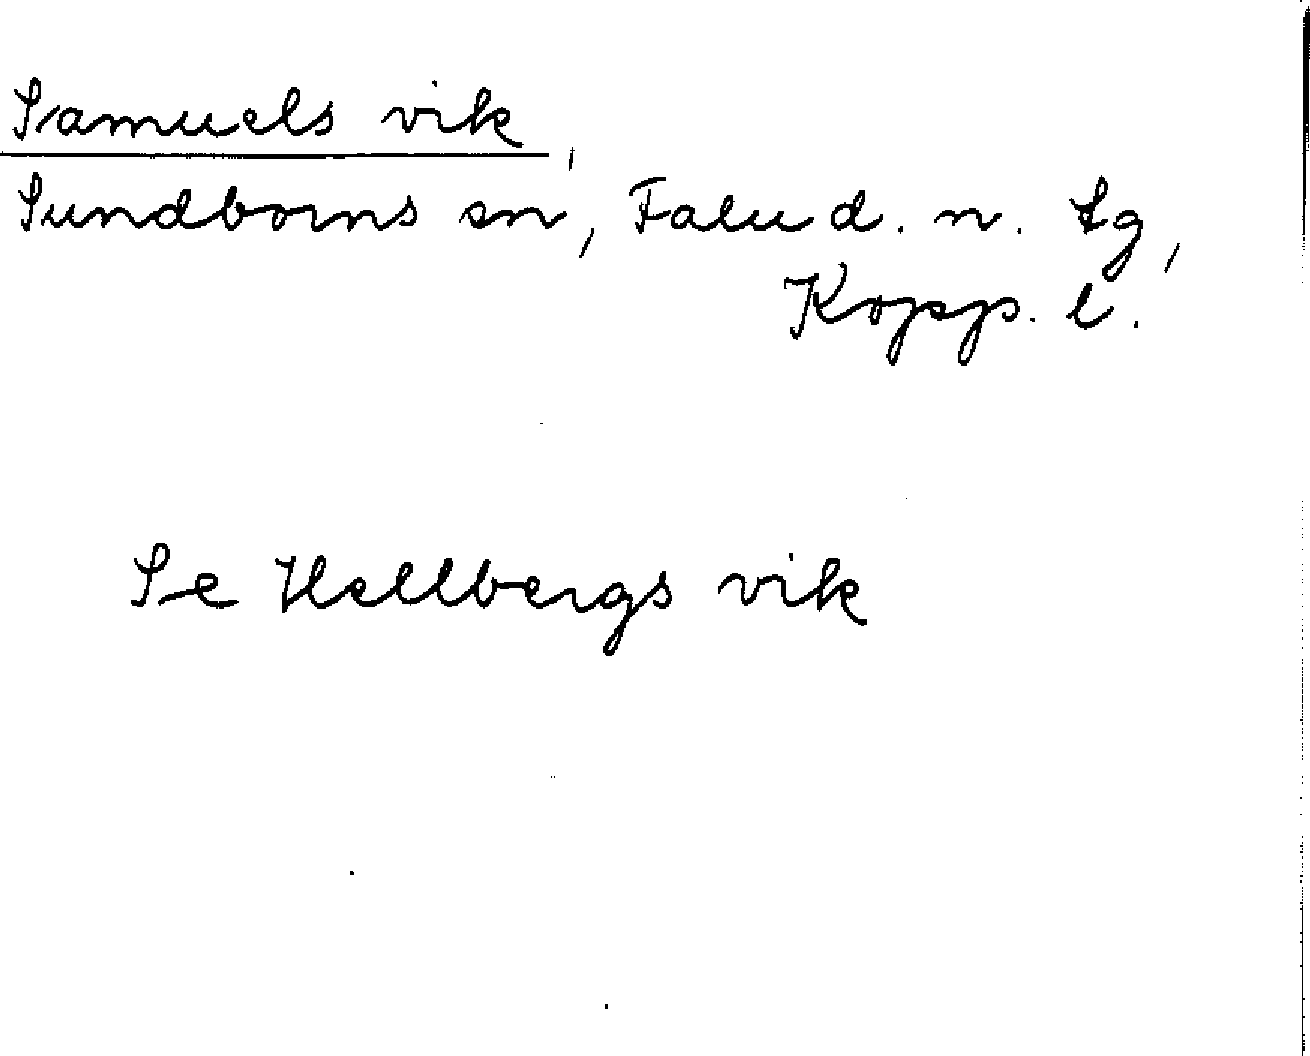 Samuels vik,
Sundborns sn, Falu d. n. tg,
Kopp. l.
Se Hellbergs vik